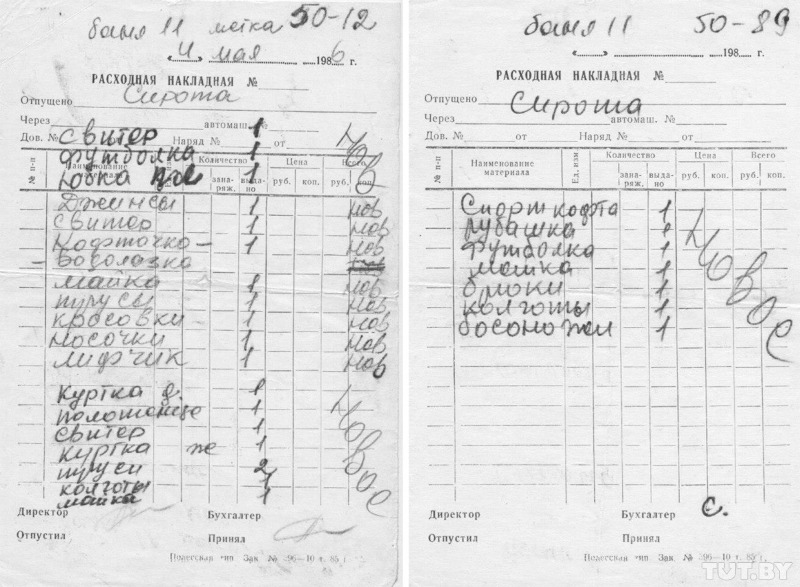 баня 11 метка 50-12
"4" мая 1986 г.
РАСХОДНАЯ НАКЛАДНАЯ №
Отпущено Сирота
Через автомаш. №
Дов. № от Наряд № от
свитер 1
футболка 1
юбка 1
№ п-п Наименование материала Количество Цена Всего
зана-ряж. выда-но руб. коп. руб. коп.
Джинсы 1 нов
свитер 1 нов
кофточка - 1 нов
водолазка
майка 1 нов
трусы 1 нов
кросовки 1 нов
носочки 1 нов
лифчик 1 нов
куртка д. 1
полотенце 1
свитер 1
куртка же 1
труси 2
колготы 1
майка 1
Новое
Директор Бухгалтер
Отпустил Принял
Полесская тип Зак. № 396—10 т. 85 г.
баня 11 50-89
" " 198 г.
РАСХОДНАЯ НАКЛАДНАЯ №
Отпущено Сирота
Через автомаш. №
Дов. № от Наряд № от
№ п-п Наименование материала Ед. изм Количество Цена Всего
зана-ряж. выда-но руб. коп. руб. коп.
Спорт кофта 1
рубашка 1
футболка 1
майка 1
брюки 1
колготы 1
босоножки 1
Новое
Директор Бухгалтер С.
Отпустил Принял
Полесская тип. Зак. № 396—10 т. 85 г.
TUT.BY